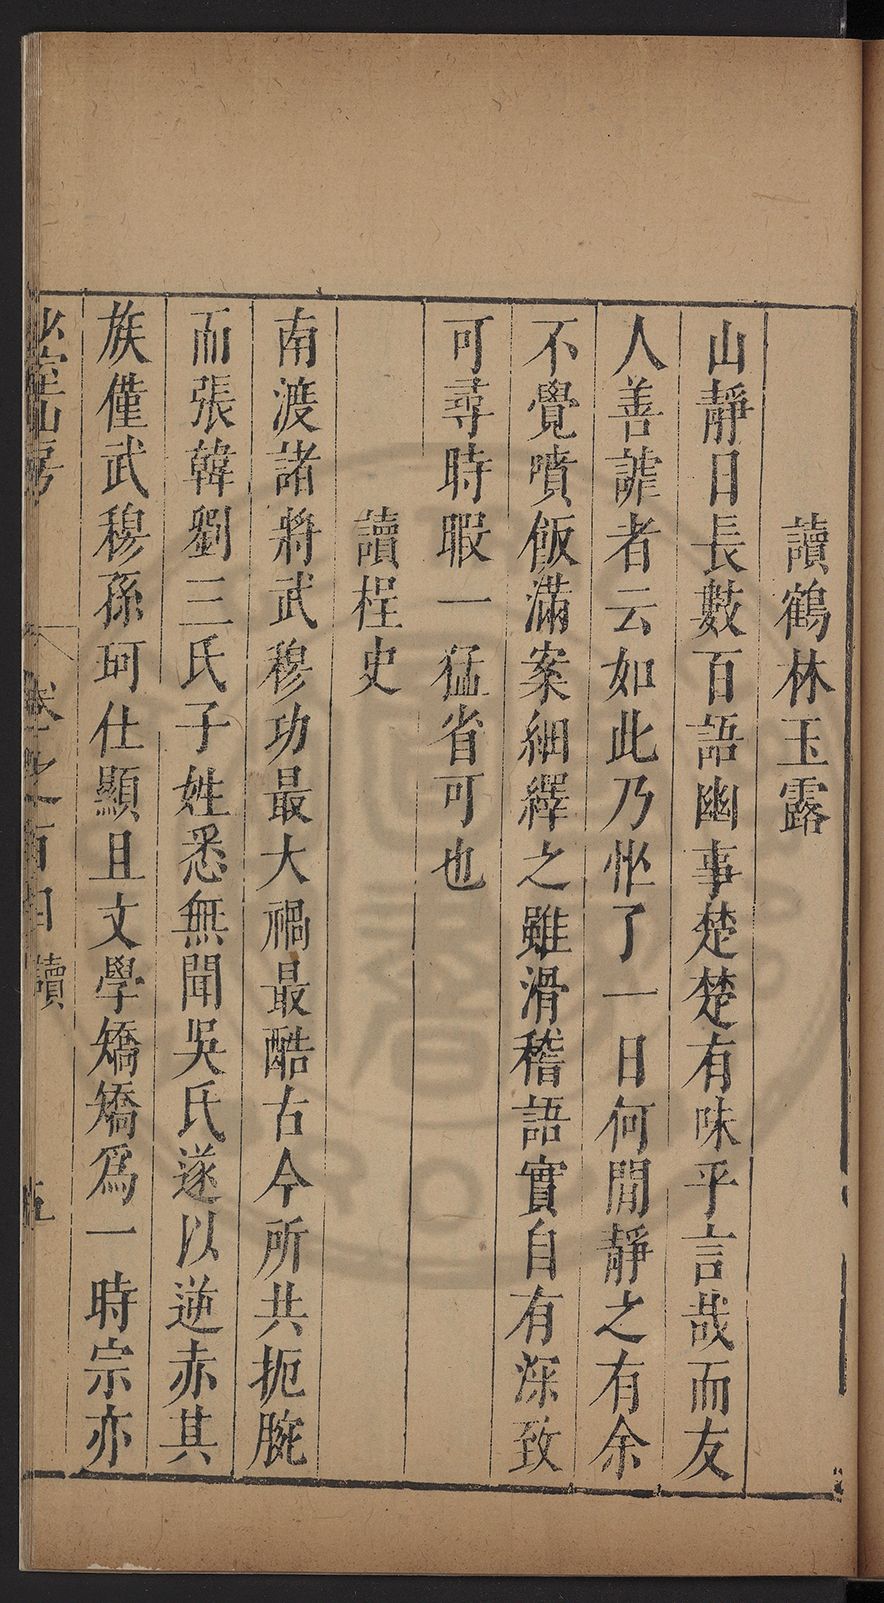 讀鶴林玉露
山靜日長數百語幽事楚楚有味乎言哉而友
人善謔者云如此乃忙了一日何閒靜之有余
不覺噴飯滿案細繹之雖滑稽語實自有深致
可尋時暇一猛省可也
讀桯史
南渡諸將武穆功最大禍最酷古今所共扼腕
而張韓劉三氏子姓悉無聞吳氏遂以逆赤其
族僅武穆孫珂仕顯且文學矯矯為一時宗亦
山房
讀
五